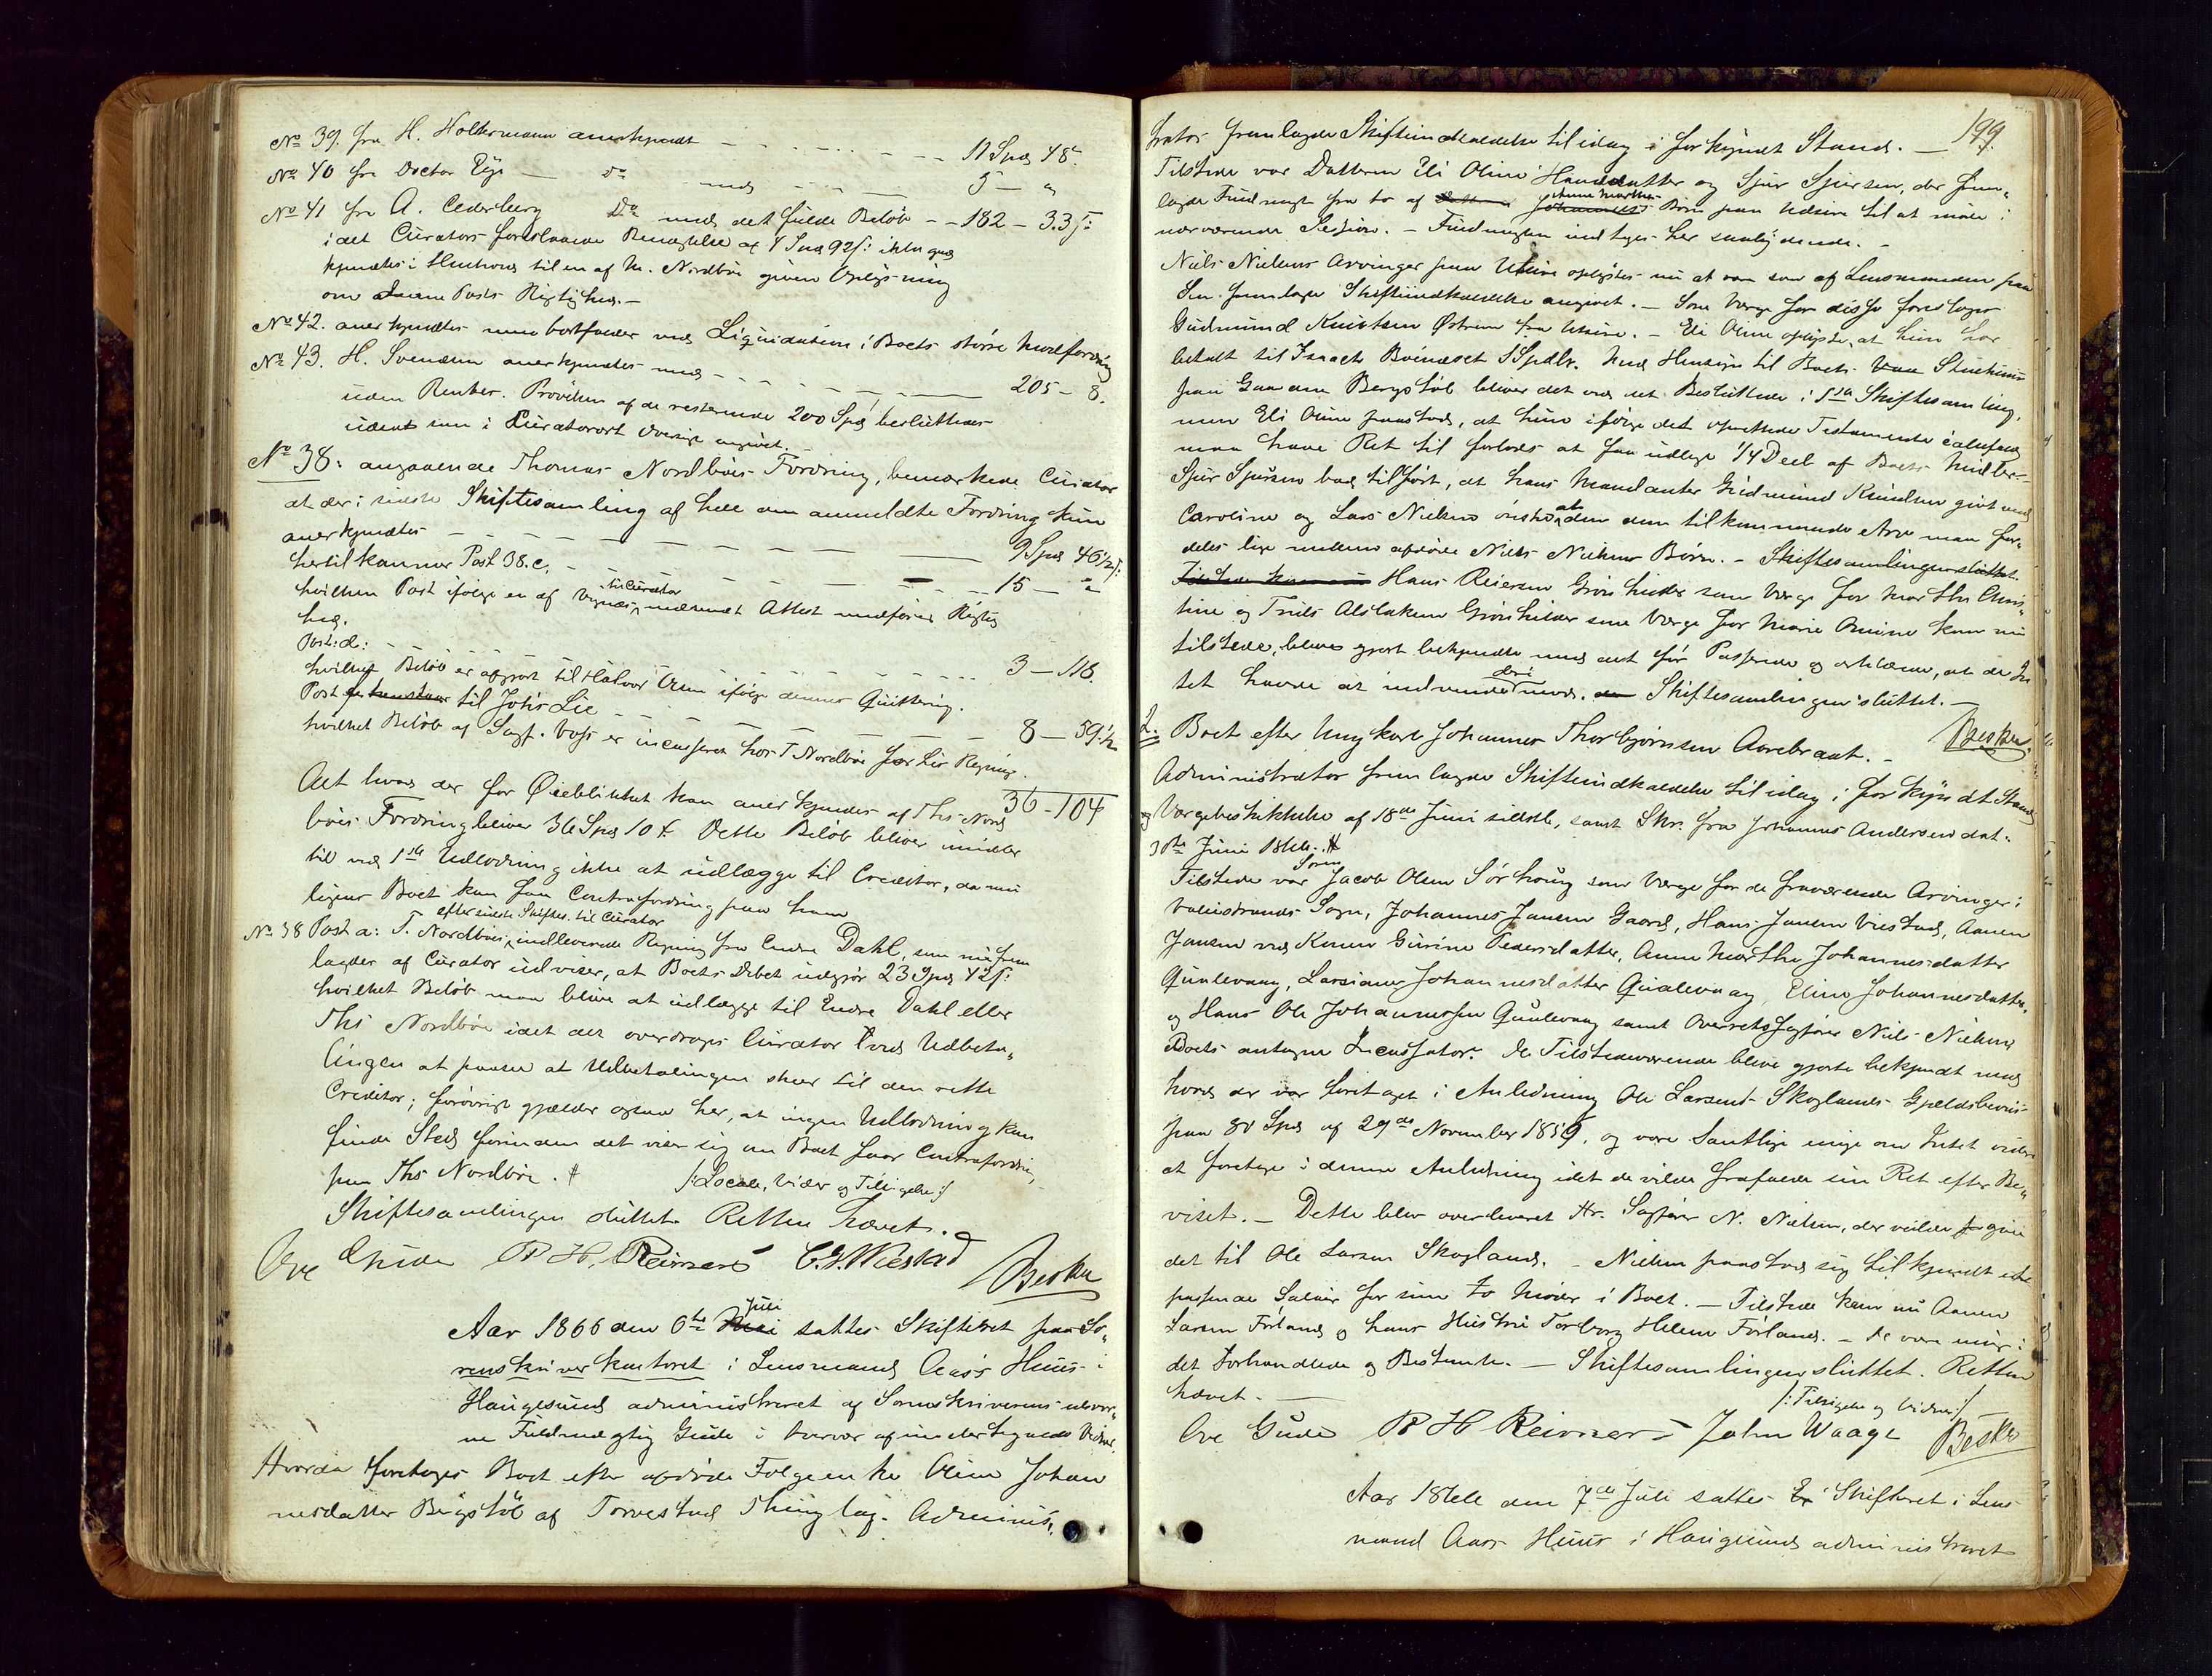 No 39. fra H. Holtermann anerkjendt - - - - - 11 Spd 48.
No 40 fra Doctor Eye - do med - - - 5 - "
No 41 fra A. Cederberg Do med det fulde Beløb - - 182 - 33 f:
idet Curators foreslaaede Benægtelse af 4 Spd 92 f: ikke god
kjendtes i Henhold til en af M. Nordbøe given Oplysning
om denne Posts Rigtighed. -
No 42. anerkjendtes men bortfalder ved Liquidation i Boets større Modfordring
No 43. H. Svendsen anerkjendtes med - - - - 205 - 8.
uden Renter. Prøvelsen af de resterende 200 Spd besluttedes
udsat som i Curators Oversigt angivet.
No 38. angaaende Thomas Nordbøes Fordring, bemærkede Curator
at der i sidste Skiftesamling af hele den anmeldte Fordring kun
anerkjendtes - - - - 9 Spd 46 1/2 f:
hertil kommer Post 38.c. - - - - 15 - "
hvilken Post ifølge en af til Curator meddelt Attest medfører Rigtig
hed.
Post: d: - - - - 3 - 116.
hvilket Beløb er afgjort til Halvor Olsen ifølge dennes Quittering.
Post til Johs Lie - - - - 8 - 59 1/2
hvilket Beløb af Sagf. Voss er incasseret hos T. Nordbøe for Lies Regning.
36 - 104
Alt hvad der for Øieblikket kan anerkjendes af Ths Nord
bøes Fordring bliver 36 Spd 104. Dette Beløb bliver imidler
tid ved 1ste Udlodning ikke at udlægge til Creditor, da mu
ligens Boet kan faa Contrafordring paa ham
No 38 Post a: T. Nordbøes efter sidste Skiftes. til Curator indleverede Regning fra Endre Dahl, som nu frem
lagdes af Curator udviser, at Boets Debet udgjør 23 Spd 42 f:
hvilket Beløb maa blive at udlægge til Endre Dahl eller
Ths Nordbøe idet det overdrages Curator ved Udbeta„
lingen at paasee at Udbetalingen skeer til den rette
Creditor; forøvrigt gjælder ogsaa her, at ingen Udlodning kan
finde Sted forinden det viser sig om Boet faar Contrafordring
paa Ths Nordbøe. /: Locale, Vidner og Tilsigelse :/
Skiftesamlingen sluttet. Retten hævet. -
Ove Gude R H Reimers C. J. Wiestad Besku
Aar 1866 den 6te Juli sattes Skifteret paa So„
renskriverkontoret i Lensmand Aas's Huus i
Haugesund administreret af Sorenskriverens edsvor„
ne Fuldmægtig Gude i Overvær af undertegnede Vidner.
Hvorda foretoges Boet efter afdøde Følgeenke Oline Johan
nesdatter Bergstøl af Torvestad Thinglag. Adminis„
199.
trator fremlagde Skifteindkaldelse til idag i forkyndt Stand. -
Tilstede var Datteren Eli Oline Hansdatter og Sjur Sjursen, der frem„
lagde Fuldmagt fra to af Anne Marthas Børn paa Udsire til at møde i
nærværende Session. - Fuldmagten indtages her saalydende. -
Niels Nielsens Arvinger paa Utsire oplystes nu at være som af Lensmanden paa
den fremlagte Skifteindkaldelse angivet. - Som Verge for disse foresloges
Gudmund Knutsen Østrem fra Utsire. - Eli Oline oplyste, at hun har
betalt til Isaach Boinæset 1 Spdlr. Med Hensyn til Boets Stuehuus
paa Gaarden Bergstøl bliver det ved det Besluttede i 1ste Skiftesamling,
men Eli Oline paastod, at hun ifølge det oprettede Testamente i altfald
maa have Ret til forlods at faa udlagt 1/4 Deel af Boets Midler. -
Sjur Sjursen bad tilført, at hans Mandanter Gudmund Knudsen givt med
Caroline og Lars Nielsen ønskede at den dem tilkommende Arv maa for„
deles lige mellem afdøde Niels Nielsens Børn. -
Hans Reiersen Grønhilder som Verge for Marthe Chris„
tine og Truls Aslaksen Grønhilder som Verge for Marie Osmine kom nu
tilstede, bleve gjort bekjendte med det før Passerede og erklærede, at de In
tet havde at indvende derimod. Skiftesamlingen sluttet. -
Besku.
2. Boet efter Ungkarl Johannes Thorbjørnsen Aarebraat. -
Administrator fremlagde Skifteindkaldelse til idag i forkyndt Stand
og Vergebeskikkelse af 18de Juni sidstl., samt Skr. fra Johannes Andersen dat.
30te Juni 1866.
Tilstede var Søren Jacob Olsen Sørhoug som Verge for de fraværende Arvinger i
Valestrands Sogn, Johannes Jansen Gaard, Hans Jansen Viestad, Aanen
Jansen ved Konen Gurine Pedersdatter, Anne Marthe Johannesdatter
Qualevaag, Larsiane Johannesdatter Qualevaag, Eline Johannesdatter,
og Hans Ole Johannessen Qualevaag samt Overretssagfører Niels Nielsen
Boets antagne Incassator. De Tilstedeværende bleve gjorte bekjendt med
hvad der var foretaget i Anledning Ole Larsens Skoglands Gjældsbeviis
paa 80 Spd af 29de November 1859, og vare Samtlige enige om Intet videre
at foretage i denne Anledning idet de vilde frafalde sin Ret efter Be„
viset. - Dette blev overleveret Hr. Sagfører N. Nielsen, der vilde give
det til Ole Larsen Skogland. - Nielsen paastod sig tilkjendt et
passende Salair for sine to Møder i Boet. - Tilstede kom nu Aanen
Larsen Førland og hans Hustru Torborg Helene Førland. - De vare enige i
det Forhandlede og Bestemte. - Skiftesamlingen sluttet. Retten
hævet. -
/: Tilsigelse og Vidner :/
Ove Gude R H Reimers John Waage Besku
Aar 1866 den 7de Juli sattes Skifteret i Lens
mand Aas's Huus i Haugesund administreret